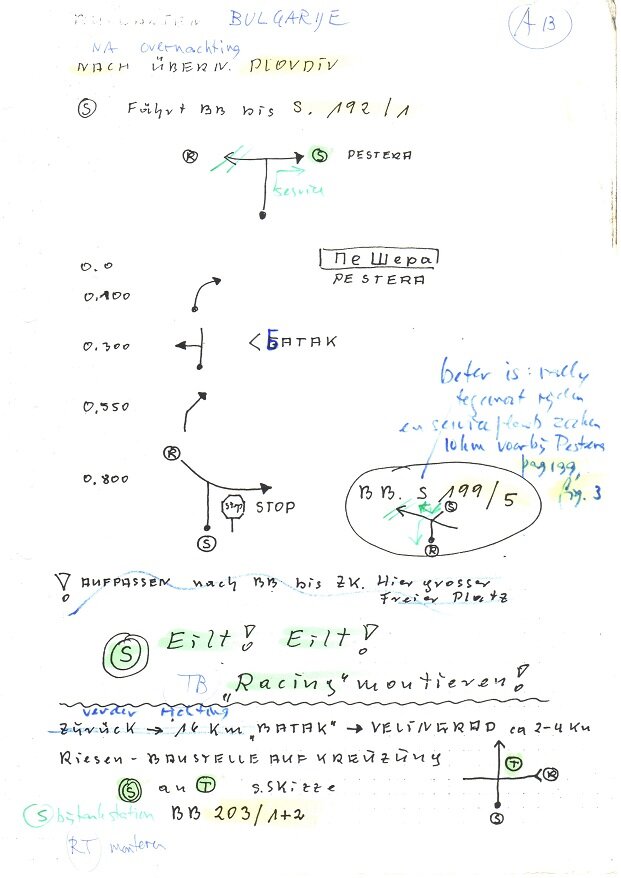 BULGARIJE
A 13
NA overnachting
NACH ÜBERN. PLOVDIV
S Fährt BB bis S. 192/1
R S PESTERA
service
0.0 Пе Щера
PESTERA
0.100
0.300 < БATAK
0.550
beter is: rally
tegemoet rijden
en service
10km voorbij Pestera
pag 199,
fig. 3
R
0.800 stop STOP
S
BB. S 199/5
S
R
! AUFPASSEN nach BB bis ZK. Hier grosser
Freier Platz
S Eilt! Eilt!
TB "Racing" montieren!
verder richting
Zurück → 14 Km "BATAK" → VELINGRAD ca 2-4 Km
Riesen-BAUSTELLE AUF KREUZUNG
T R
S an T s.Skizze
S bij tankstation BB 203/1+2
S
RT monteren